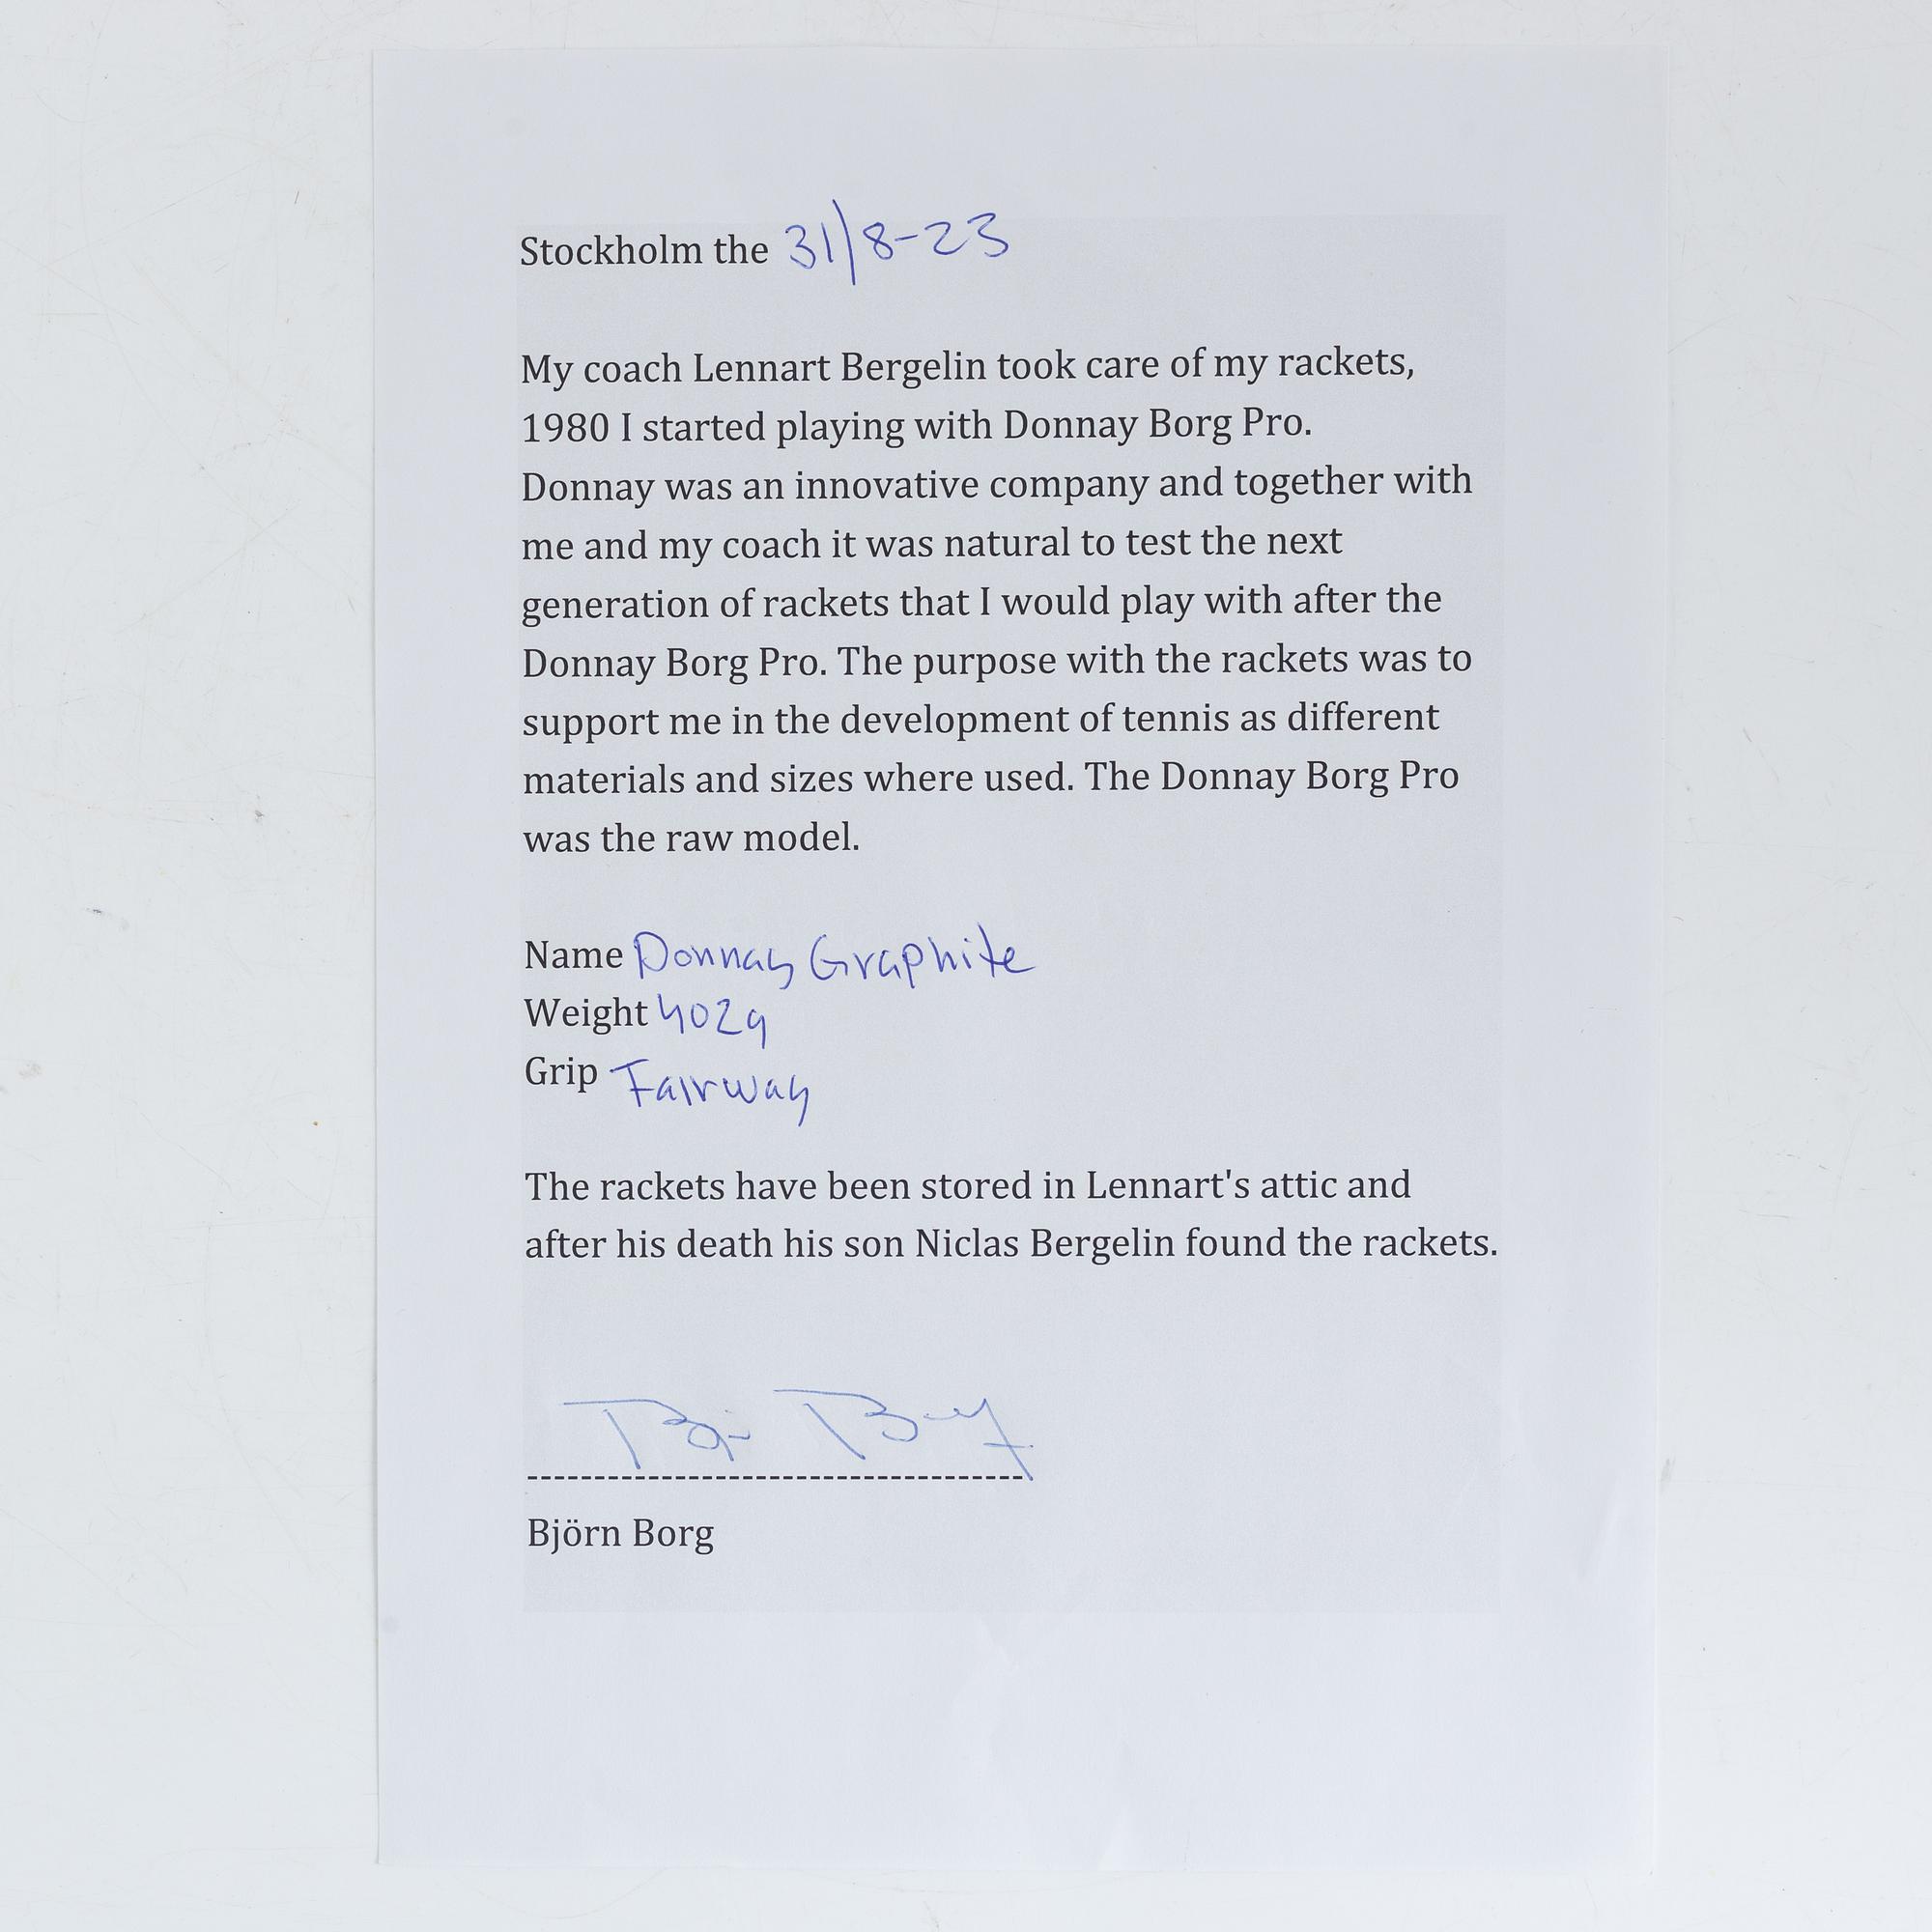 Stockholm the 31/8-23
My coach Lennart Bergelin took care of my rackets,
1980 I started playing with Donnay Borg Pro.
Donnay was an innovative company and together with
me and my coach it was natural to test the next
generation of rackets that I would play with after the
Donnay Borg Pro. The purpose with the rackets was to
support me in the development of tennis as different
materials and sizes where used. The Donnay Borg Pro
was the raw model.
Name Donnay Graphite
Weight 402g
Grip Fairway
The rackets have been stored in Lennart's attic and
after his death his son Niclas Bergelin found the rackets.
Björn Borg
Björn Borg